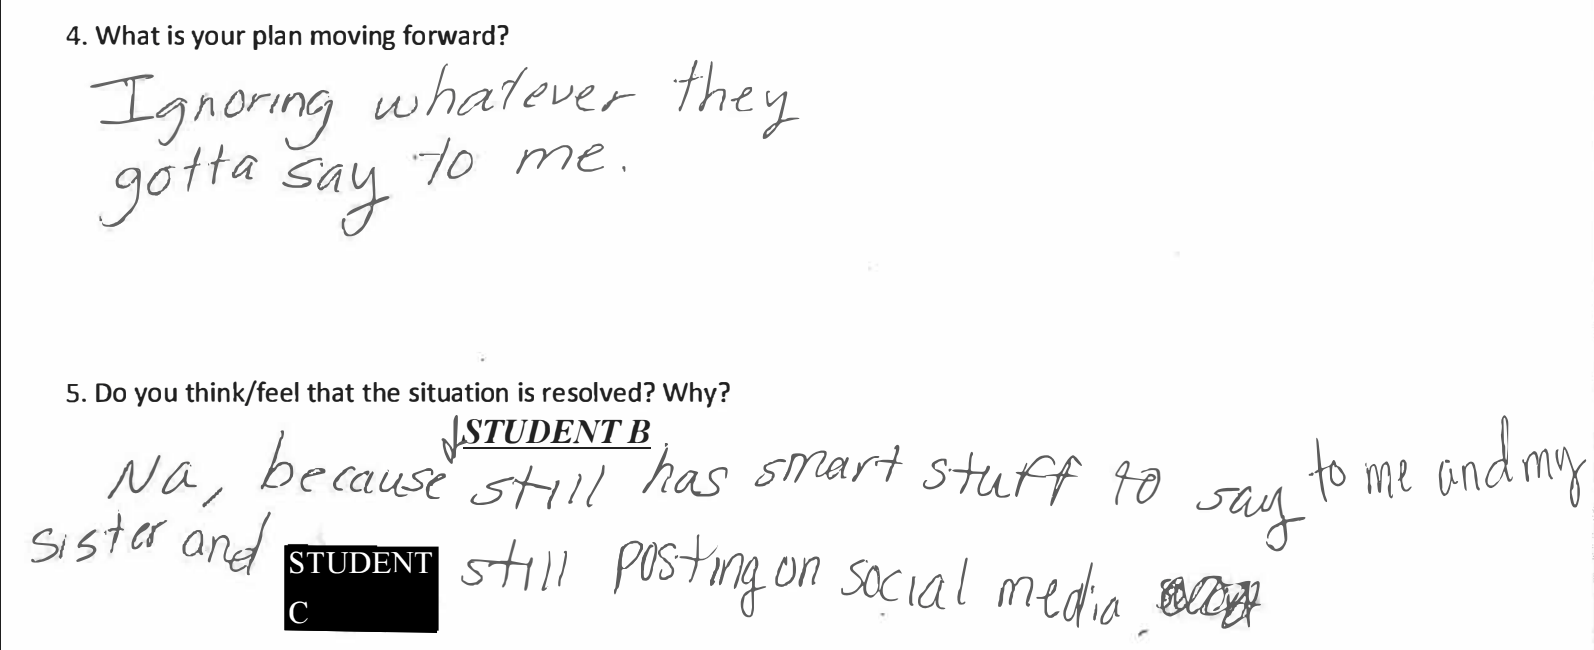 4. What is your plan moving forward?
Ignoring whatever they
gotta say to me.
5. Do you think/feel that the situation is resolved? Why?
STUDENT B
Na, because still has smart stuff to say to me and my
sister and STUDENT C still posting on social media.